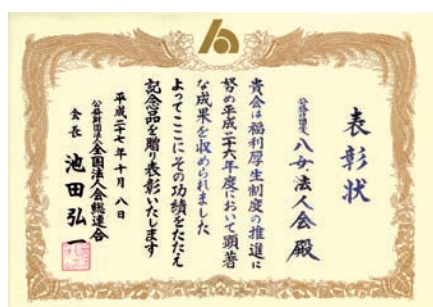 表彰状
公益社団法人 八女法人会 殿
貴会は福利厚生制度の推進に
努め平成二十六年度において顕著
な成果を収められました
よってここにその功績をたたえ
記念品を贈り表彰いたします
平成二十七年十月八日
公益財団法人 全国法人会総連合
会長 池田弘一